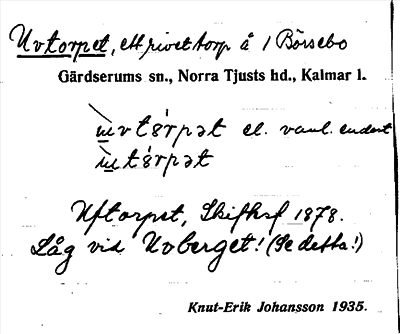 Uvtorpet, ett rivet torp å 1 Börsebo
Gärdserums sn., Norra Tjusts hd., Kalmar l.
ùvtórpət el. vanl. endast
ùtórpət
Uftorpet, Skifteskarta 1878.
Låg vid Uvberget! (Se detta!)
Knut-Erik Johansson 1935.